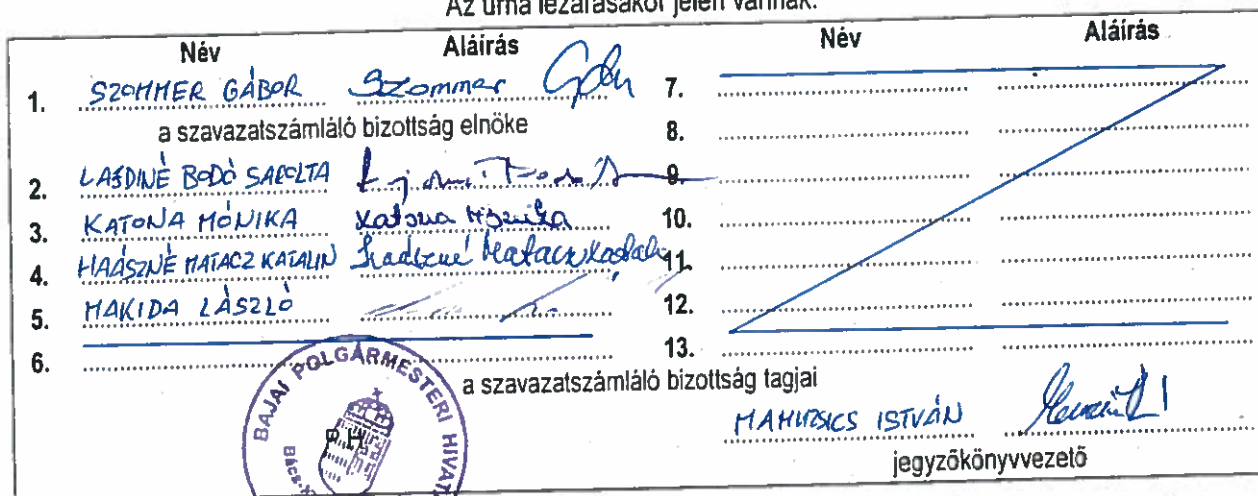 Az urna lezárásakor jelen vannak:
Név Aláírás Név Aláírás
1. SZOMMER GÁBOR Szommer 7.
a szavazatszámláló bizottság elnöke 8.
2. BODÓ SAROLTA 9.
3. KATONA MÓNIKA Katona Mónika 10.
4. HAÁSZNÉ MATACZ KATALIN Haászné Matacz Katalin 11.
5. MAKIDA LÁSZLÓ 12.
6. 13.
a szavazatszámláló bizottság tagjai
ISTVÁN
jegyzőkönyvvezető
BAJAI POLGÁRMESTERI HIVAT
P.H.